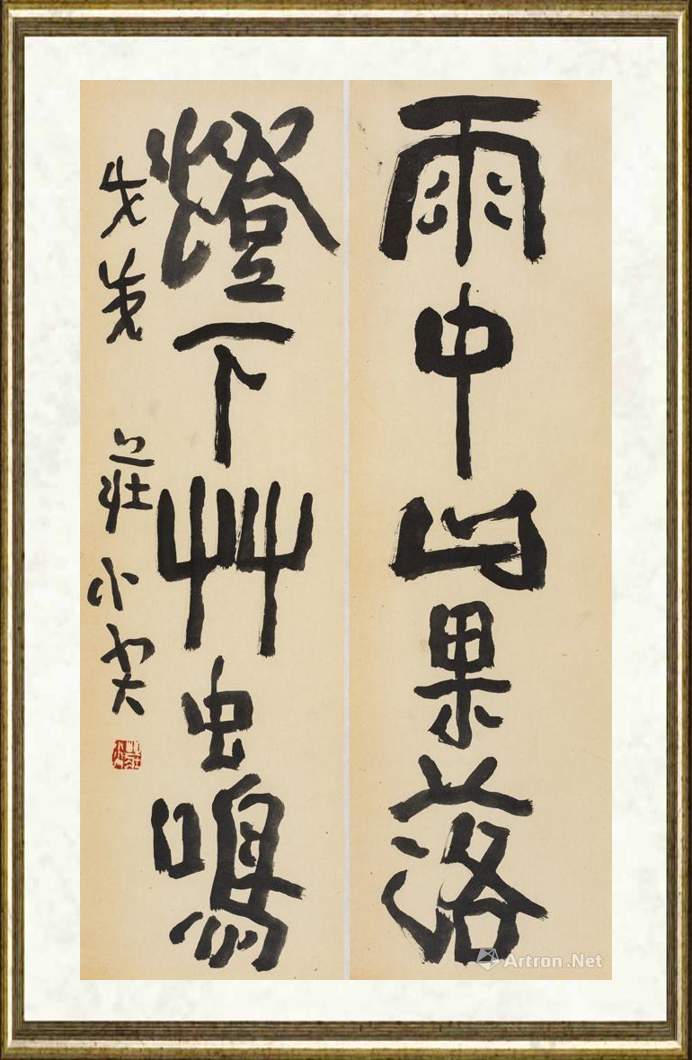 雨中山果落
燈下艸虫鳴
戊戌 莊小尖
Artron.Net